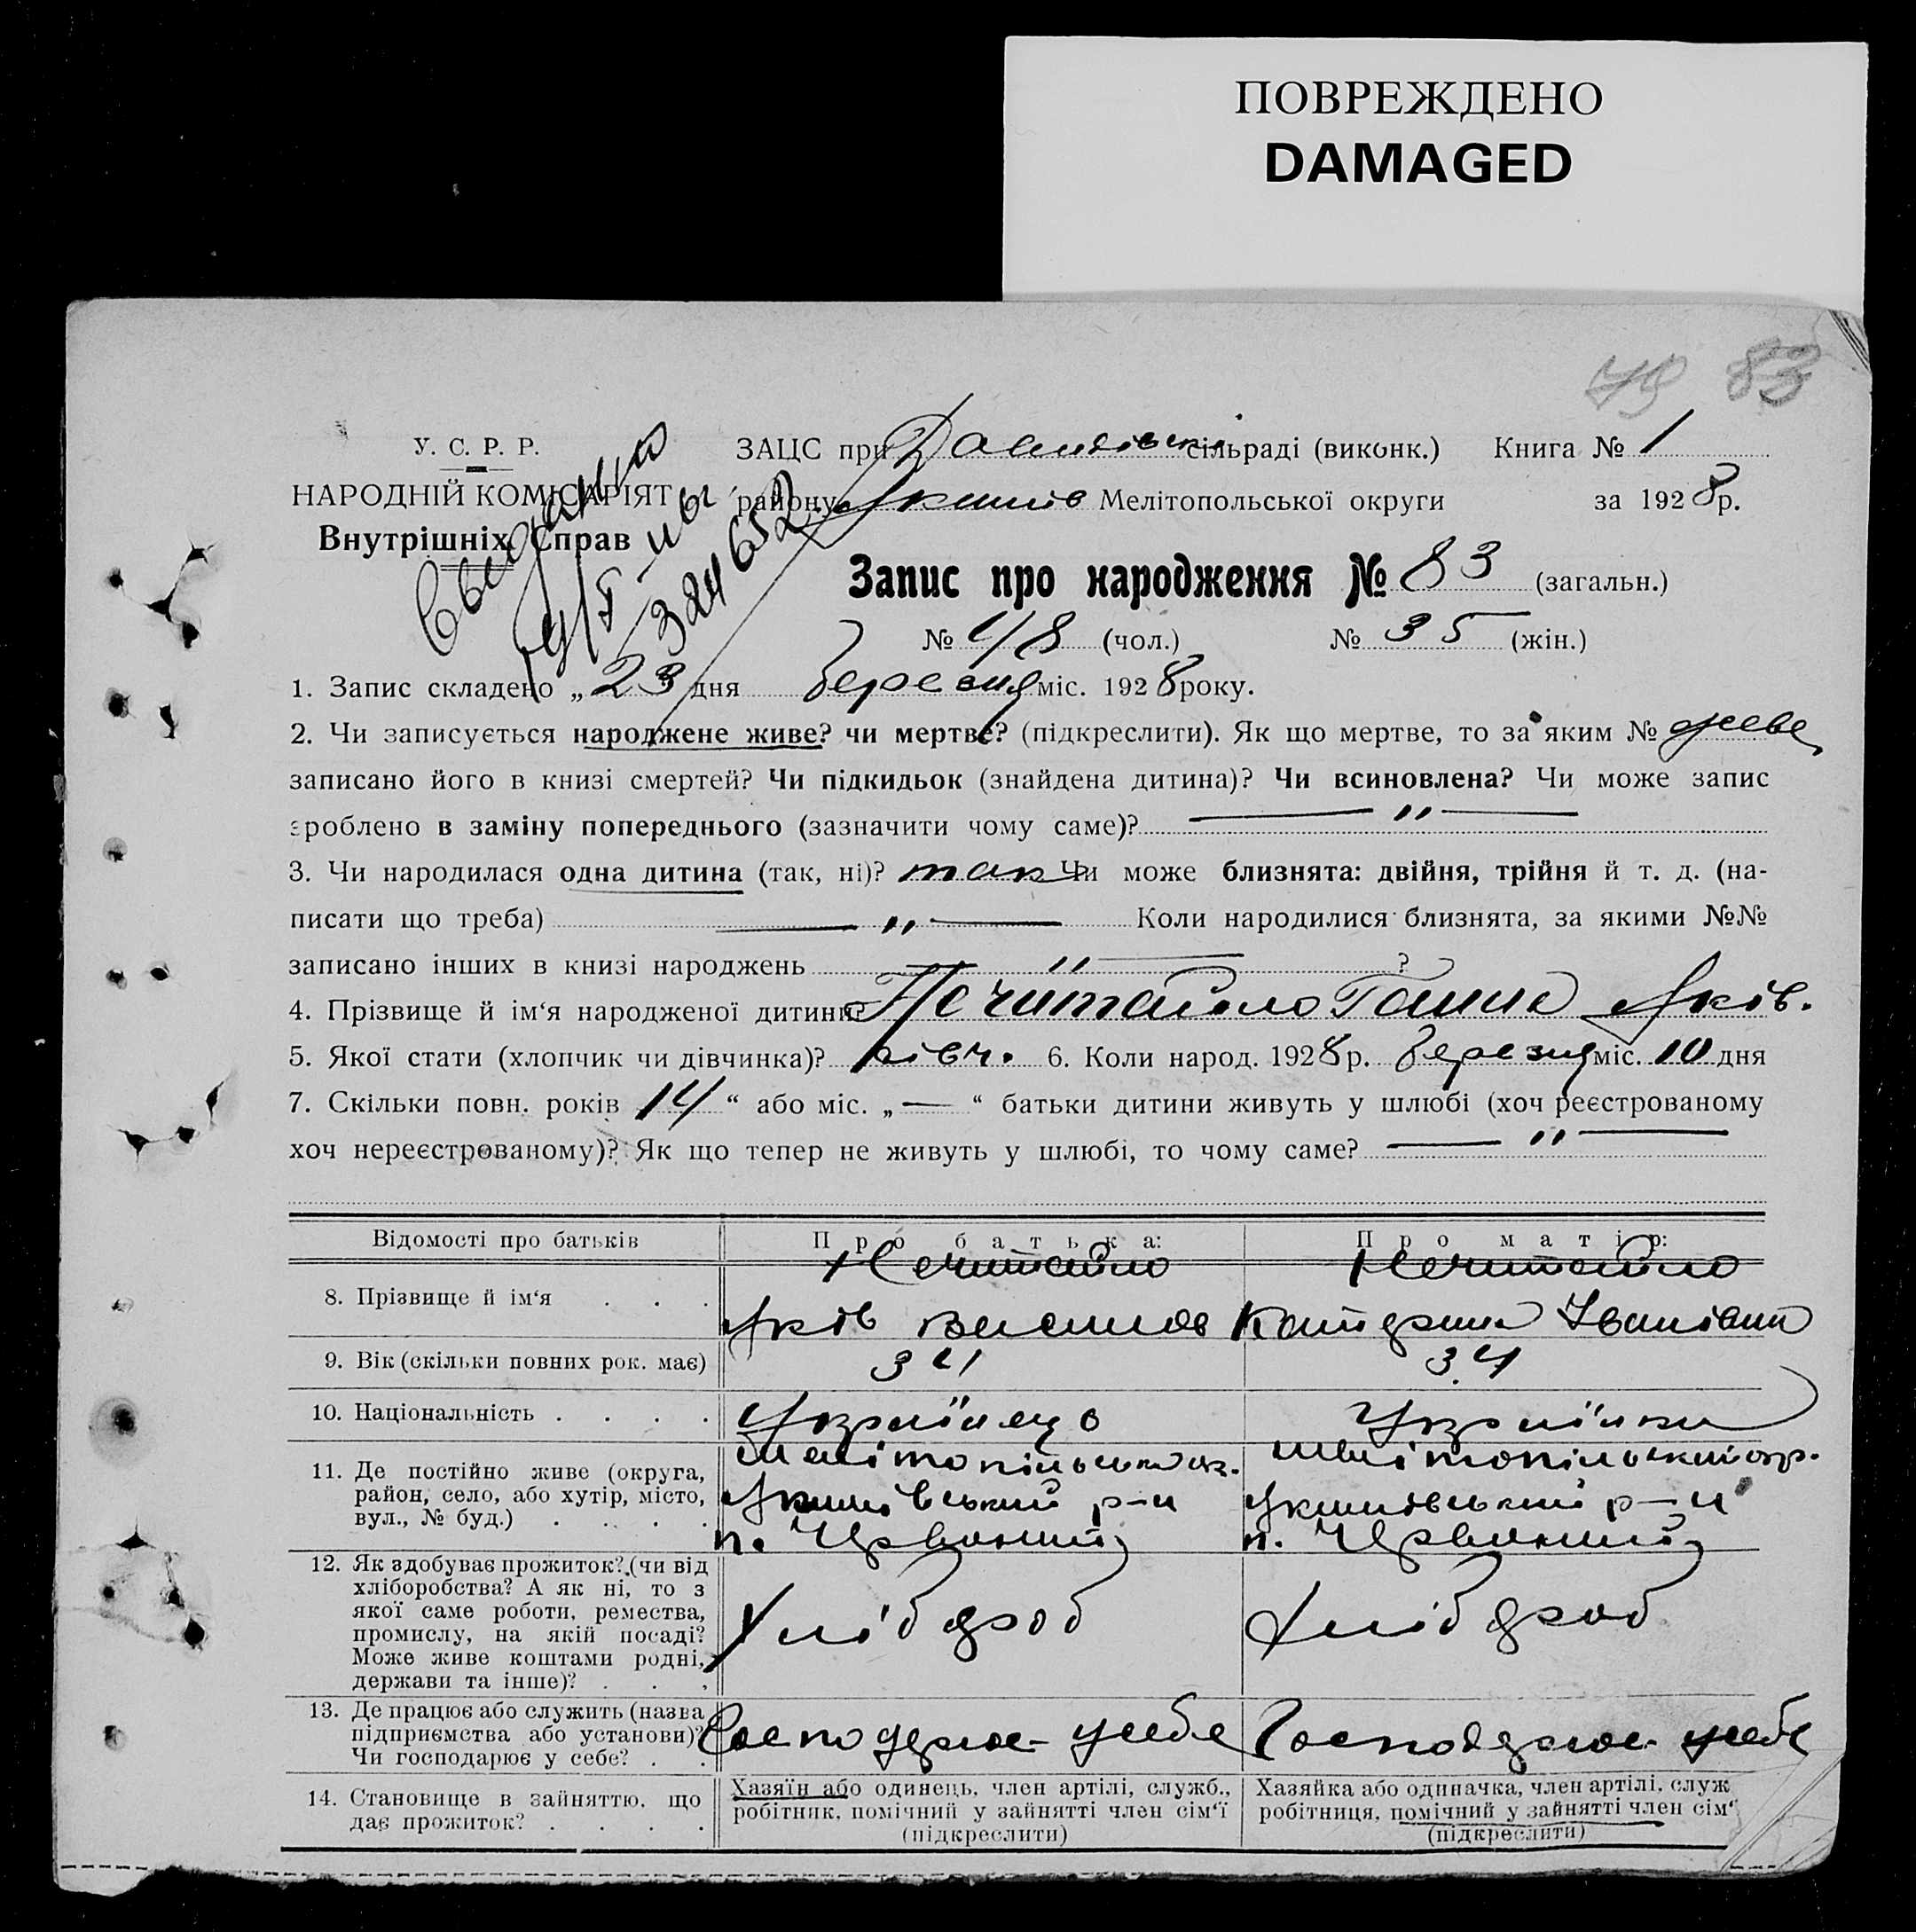 ПОВРЕЖДЕНО
DAMAGED
83
У. С. Р. Р.
НАРОДНІЙ КОМІСАРІЯТ
Внутрішніх Справ
324652
ЗАЦС при Давидівськ сільраді (виконк.) Книга № 1
району Якимів Мелітопольської округи за 1928 р.
Запис про народження № 83 (загальн.)
№ 48 (чол.) № 35 (жін.)
1. Запис складено „ 23 дня березня міс. 1928 року.
2. Чи записується народжене живе? чи мертве? (підкреслити). Як що мертве, то за яким № живе
записано його в книзі смертей? Чи підкидьок (знайдена дитина)? Чи всиновлена? Чи може запис
зроблено в заміну попереднього (зазначити чому саме)? — „ —
3. Чи народилася одна дитина (так, ні)? так Чи може близнята: двійня, трійня й т. д. (на-
писати що треба) — „ — Коли народилися близнята, за якими №№
записано інших в книзі народжень — „ — ?
4. Прізвище й ім‘я народженої дитини? Нечитайло Ганна Яків.
5. Якої стати (хлопчик чи дівчинка)? дівч. 6. Коли народ. 1928 р. березня міс. 10 дня
7. Скільки повн. років 14 “ або міс. „ — “ батьки дитини живуть у шлюбі (хоч реєстрованому
хоч нереєстрованому)? Як що тепер не живуть у шлюбі, то чому саме? — „ —
Відомості про батьків Про батька: Про матір:
8. Прізвище й ім‘я . . . Нечитайло Яків Василов Нечитайло Катерина Іванівна
9. Вік (скільки повних рок. має) 34 34
10. Національність . . . . Українець Українка
11. Де постійно живе (округа, район, село, або хутір, місто, вул., № буд.) . . . .
Мелітопільська ок. Якимівський р-н п. Червоний
Мелітопільський окр. Якимівський р-н п. Червоний
12. Як здобуває прожиток? (чи від хліборобства? А як ні, то з якої саме роботи, ремества, промислу, на якій посаді? Може живе коштами родні, держави та інше)? . . .
Хлібороб Хлібороб
13. Де працює або служить (назва підприємства або установи)? Чи господарює у себе? . .
Господарює у себе Господарює у себе
14. Становище в зайняттю, що дає прожиток? . . . .
Хазяїн або одинець, член артілі, служб., робітник, помічний у зайнятті член сім‘ї (підкреслити)
Хазяйка або одиначка, член артілі, служ робітниця, помічний у зайнятті член сім‘ (підкреслити)